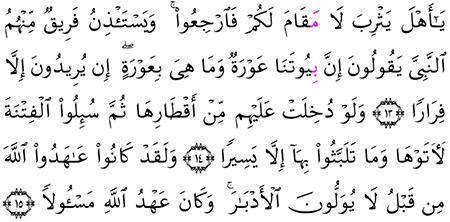 يَـٰٓأَهۡلَ يَثۡرِبَ لَا مَقَامَ لَكُمۡ فَٱرۡجِعُوا۟ۚ وَيَسۡتَـٔۡذِنُ فَرِيقٌ مِّنۡهُمُ
ٱلنَّبِىَّ يَقُولُونَ إِنَّ بِيُوتَنَا عَوۡرَةٌ وَمَا هِىَ بِعَوۡرَةٍۖ إِن يُرِيدُونَ إِلَّا
فِرَارًا ۝١٣ وَلَوۡ دُخِلَتۡ عَلَيۡهِم مِّنۡ أَقۡطَارِهَا ثُمَّ سُئِلُوا۟ ٱلۡفِتۡنَةَ
لَأَتَوۡهَا وَمَا تَلَبَّثُوا۟ بِهَآ إِلَّا يَسِيرًا ۝١٤ وَلَقَدۡ كَانُوا۟ عَـٰهَدُوا۟ ٱللَّهَ
مِن قَبۡلُ لَا يُوَلُّونَ ٱلۡأَدۡبَـٰرَۚ وَكَانَ عَهۡدُ ٱللَّهِ مَسۡـُٔولًا ۝١٥